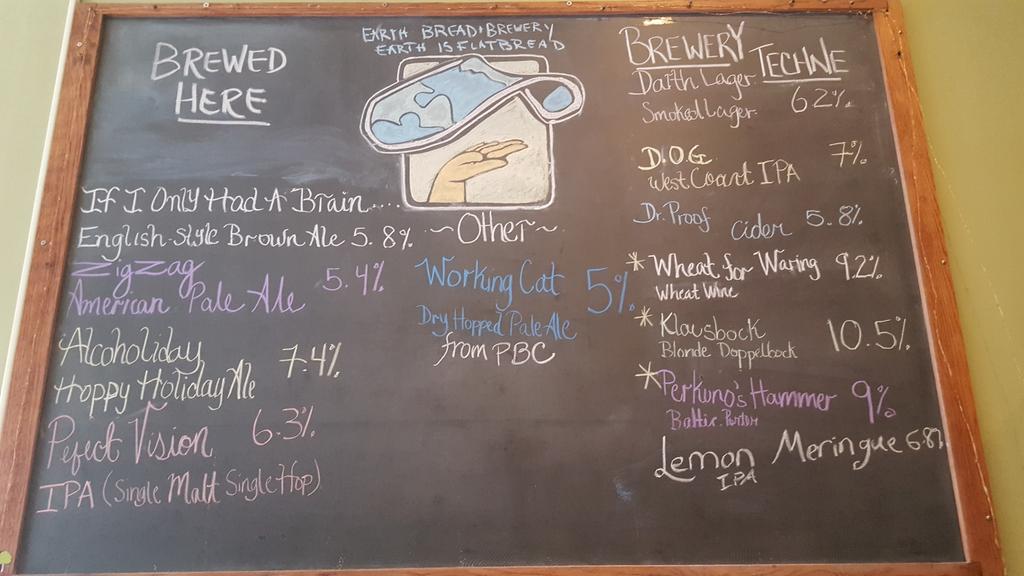 EARTH BREAD + BREWERY
EARTH IS FLATBREAD
BREWED
HERE
If I Only Had A Brain....
English-Style Brown Ale 5.8%
ZigZag 5.4%
American Pale Ale
Alcoholiday 7.4%
Hoppy Holiday Ale
Pefect Vision 6.3%
IPA (Single Malt Single Hop)
~Other~
Working Cat 5%
Dry Hopped Pale Ale
from PBC
BREWERY TECHNE
Darth Lager 6.2%
Smoked Lager
D.O.G 7%
West Coast IPA
Dr. Proof Cider 5.8%
* Wheat for Waring 9.2%
Wheat Wine
* Klausbock 10.5%
Blonde Doppelbock
* Perkuno's Hammer 9%
Baltic Porter
Lemon Meringue 6.8%
IPA